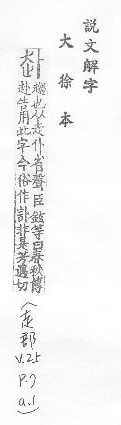 説文解字
大徐本
赴
趨也从走仆省聲臣鉉等曰春秋傳
赴告用此字今俗作訃非是芳遇切
(走部
v.25
a.1)